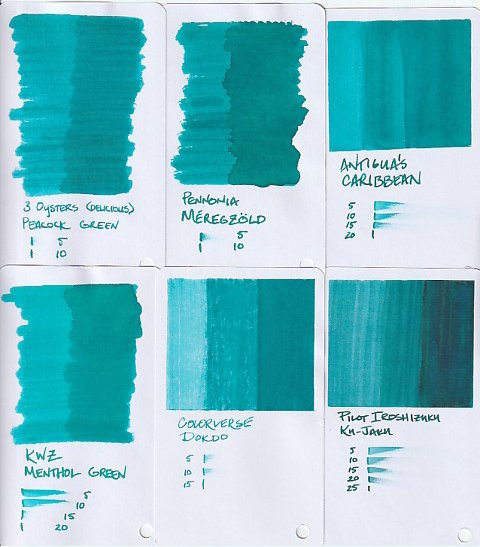 3 OYSTERS (DELICIOUS)
PEACOCK GREEN
5
10
PENNONIA
MÉREGZÖLD
5
10
ANTIGUA'S
CARIBBEAN
5
10
15
20
KWZ
MENTHOL GREEN
5
10
15
20
COLORVERSE
DOKDO
5
10
15
PILOT IROSHIZUKU
KU-JAKU
5
10
15
20
25